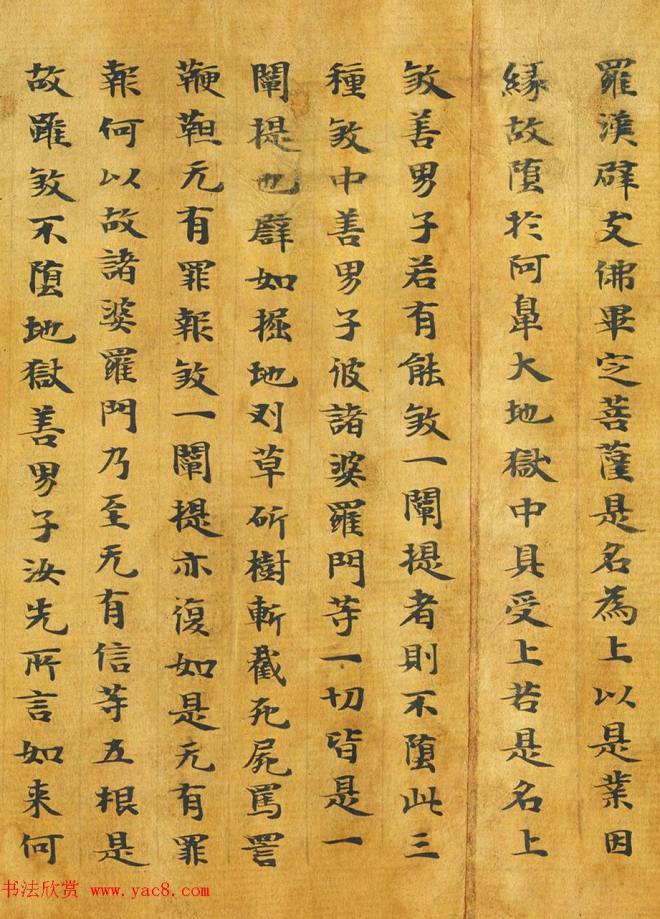 羅漢辟支佛畢定菩薩是名為上以是業因
緣故墮於阿鼻大地獄中具受上苦是名上
煞善男子若有能煞一闡提者則不墮此三
種煞中善男子彼諸婆羅門等一切皆是一
闡提也譬如掘地刈草斫樹斬截死屍罵詈
鞭靼无有罪報煞一闡提亦復如是无有罪
報何以故諸婆羅門乃至无有信等五根是
故雖煞不墮地獄善男子汝先所言如来何
书法欣赏 www.yac8.com